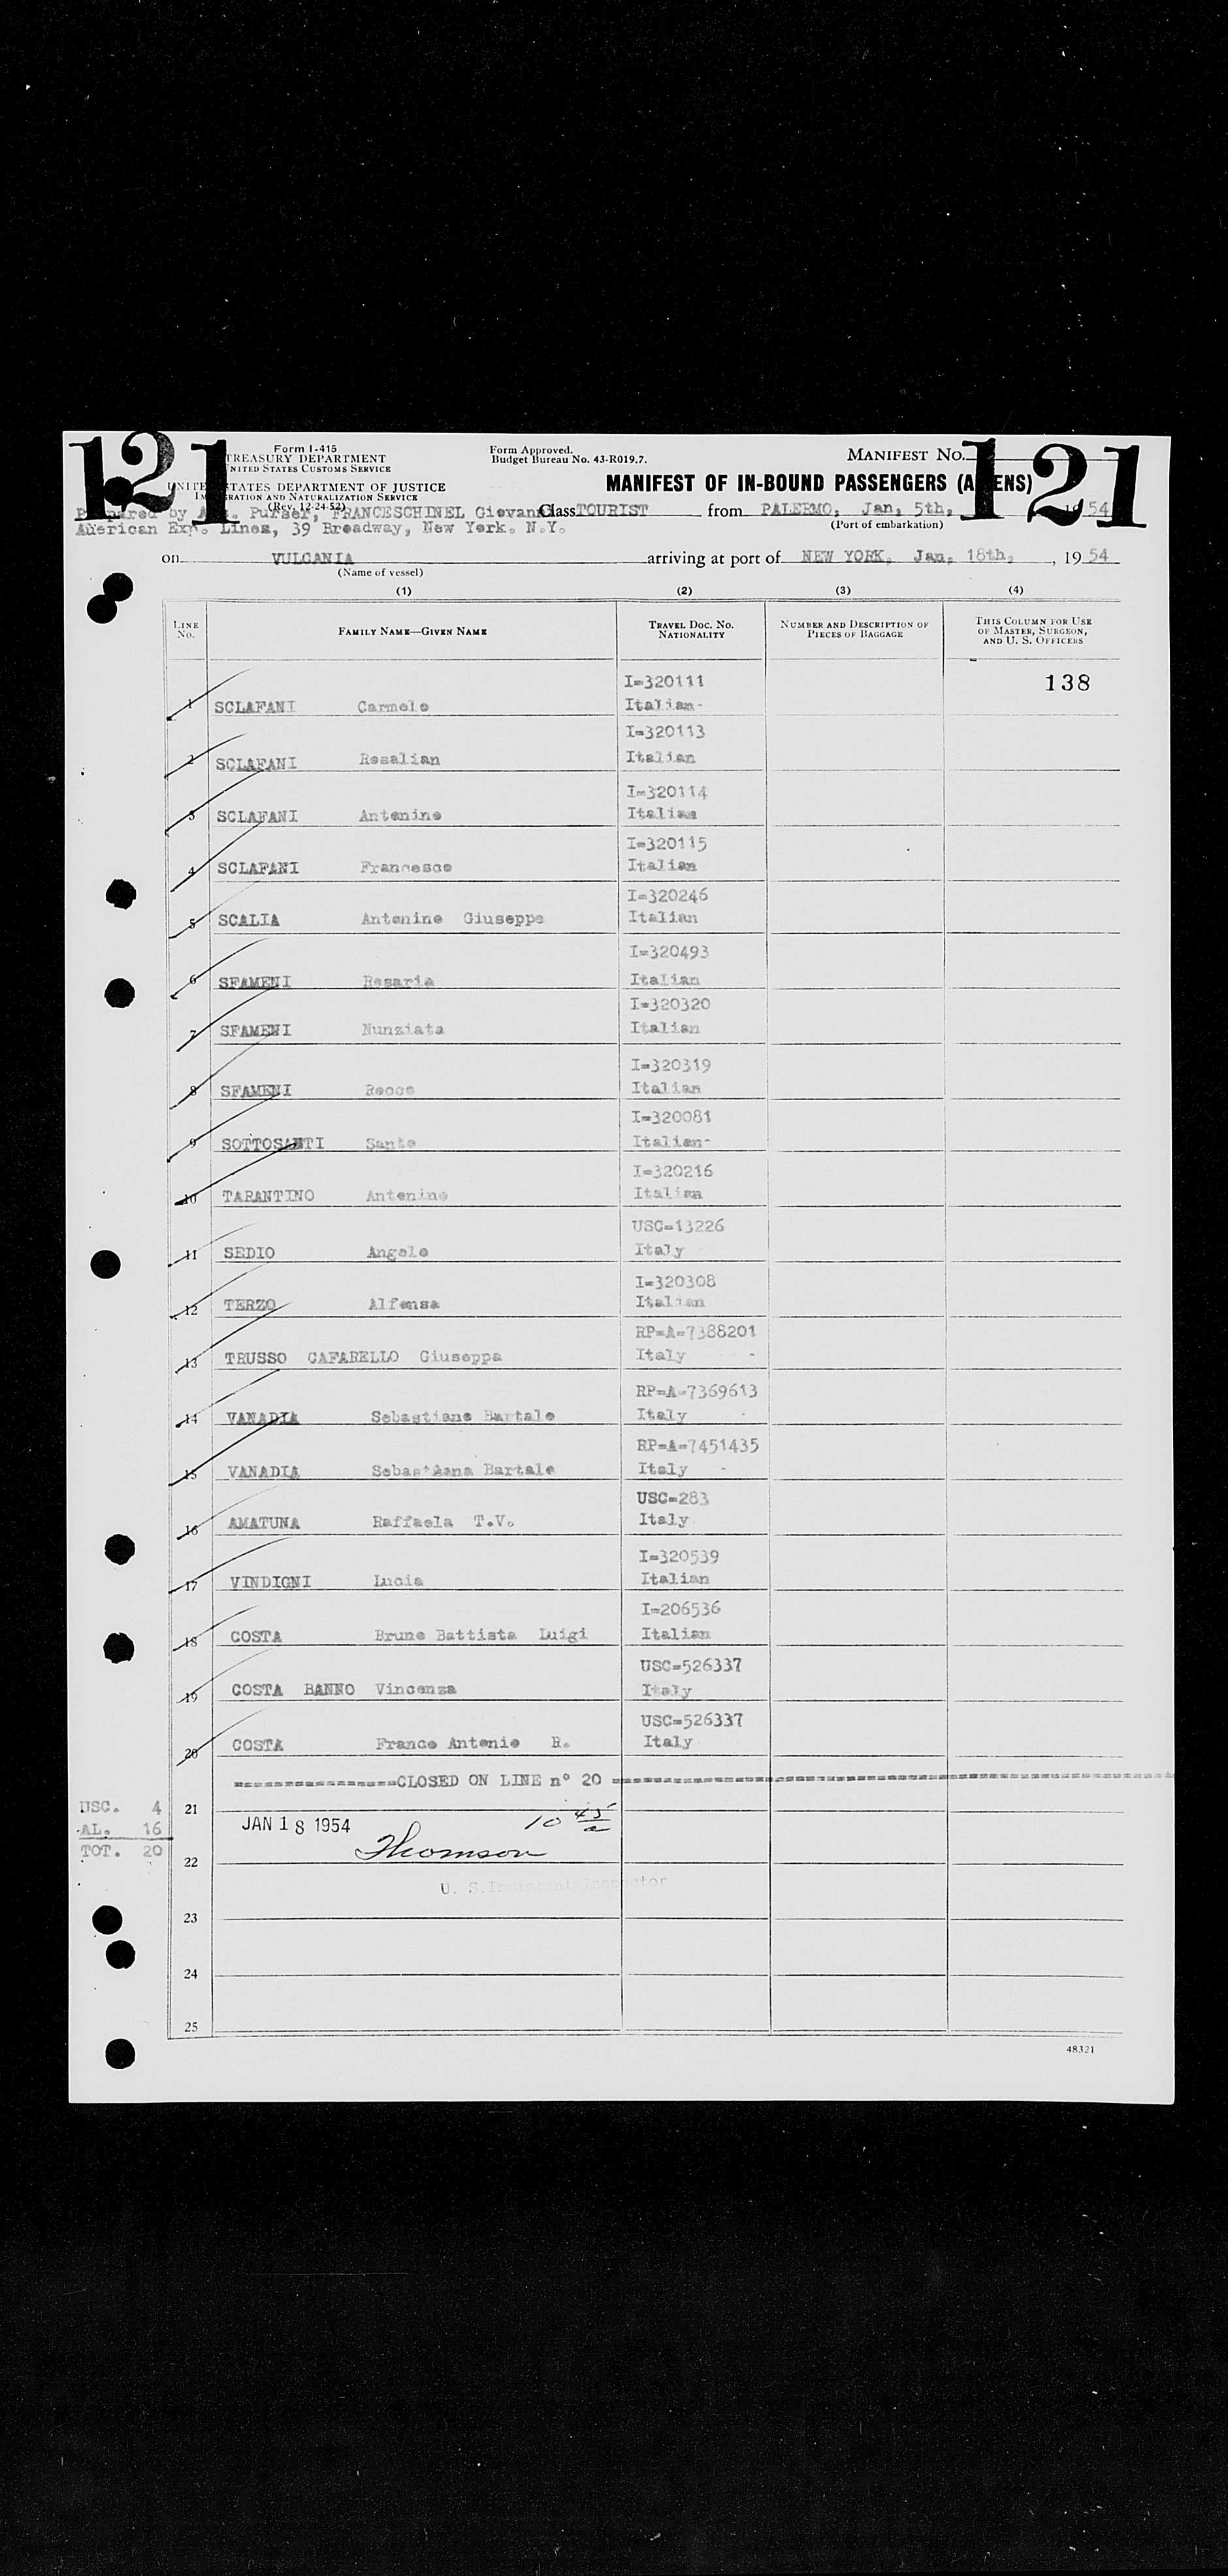 121
121
Form I-415
TREASURY DEPARTMENT
UNITED STATES CUSTOMS SERVICE
Form Approved.
Budget Bureau No. 43-R019.7.
MANIFEST No.
UNITED STATES DEPARTMENT OF JUSTICE
IMMIGRATION AND NATURALIZATION SERVICE
(Rev. 12-24-52)
MANIFEST OF IN-BOUND PASSENGERS (ALIENS)
Prepared by Purser, FRANCESCHINEL Giovanni Class TOURIST from PALERMO, Jan, 5th, 1954
American Exp. Lines, 39 Broadway, New York. N.Y.
(Port of embarkation)
on VULCANIA arriving at port of NEW YORK, Jan, 18th, , 19 54
(Name of vessel)
(1) (2) (3) (4)
LINE No. FAMILY NAME—GIVEN NAME TRAVEL DOC. No. NATIONALITY NUMBER AND DESCRIPTION OF PIECES OF BAGGAGE THIS COLUMN FOR USE OF MASTER, SURGEON, AND U. S. OFFICERS
I=320111 138
1 SCLAFANI Carmelo Italian-
I=320113
2 SCLAFANI Rosalian Italian
I=320114
3 SCLAFANI Antonino Italian
I=320115
4 SCLAFANI Francesco Italian
I=320246
5 SCALIA Antonino Giuseppe Italian
I=320493
6 SFAMENI Rosaria Italian
I=320320
7 SFAMENI Nunziata Italian
I=320319
8 SFAMENI Rocco Italian
I=320081
9 SOTTOSANTI Santo Italian-
I=320216
10 TARANTINO Antonino Italian
USC=13226
11 SEDIO Angelo Italy
I=320308
12 TERZO Alfonsa Italian
RP=A=7388201
13 TRUSSO CAFARELLO Giuseppa Italy -
RP=A=7369613
14 VANADIA Sebastiano Bartale Italy -
RP=A=7451435
15 VANADIA Sebastiana Bartale Italy -
USC=283
16 AMATUNA Raffaela T.V. Italy
I=320539
17 VINDIGNI Lucia Italian
I=206536
18 COSTA Bruno Battista Luigi Italian
USC=526337
19 COSTA BANNO Vincenza Italy
USC=526337
20 COSTA Franco Antonio R. Italy
================CLOSED ON LINE n° 20 ================
USC. 4 21
JAN 18 1954 10 45/a
AL. 16
TOT. 20
22 Thomson
U. S. Immigrant Inspector
23
24
25
48321